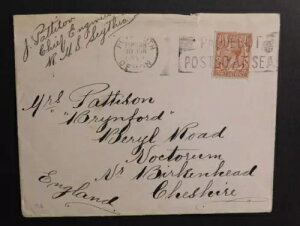 J. Pattison
Chief Engineer
R M S Scythia
PLYMOUTH
DEVON
POST
SEA
Mrs Pattison
"Brynford"
Beryl Road
Noctorum
Nr Birkenhead
Cheshire
England